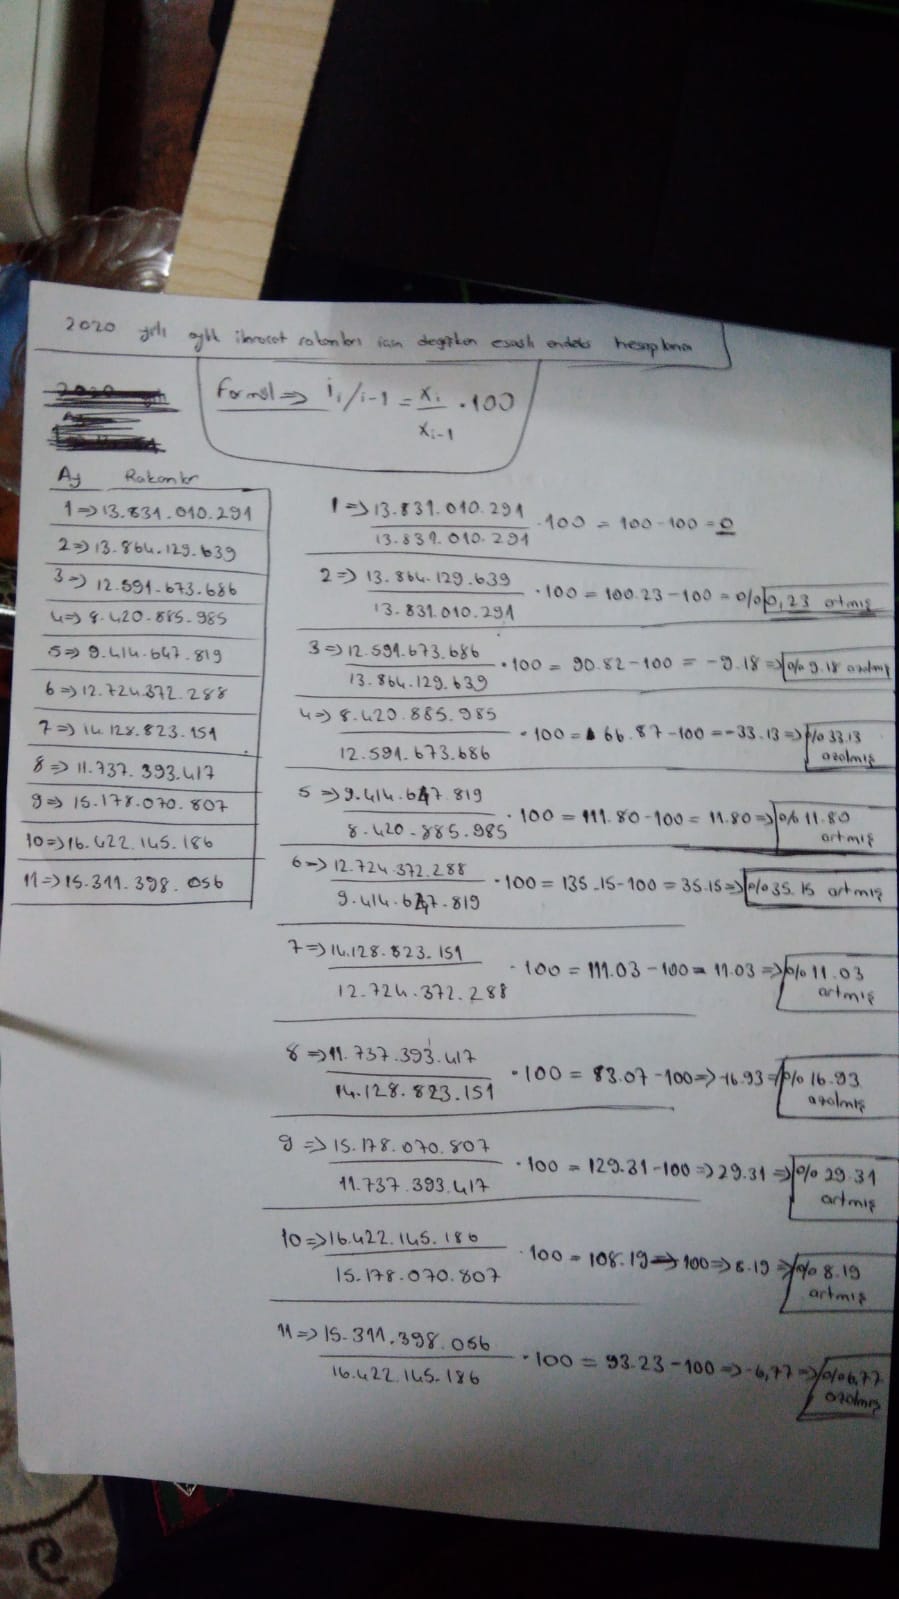 2020 yılı aylık ihracat rakamları için değişken esaslı endeks hesaplama
Formül => i i/i-1 = xi / xi-1 . 100
Ay Rakamlar
1 => 13.831.010.291
2 => 13.864.129.639
3 => 12.591.673.686
4 => 8.420.885.985
5 => 9.414.647.819
6 => 12.724.372.288
7 => 14.128.823.151
8 => 11.737.393.417
9 => 15.178.070.807
10 => 16.422.145.186
11 => 15.311.398.056
1 => 13.831.010.291
13.831.010.291 . 100 = 100-100 = 0
2 => 13.864.129.639
13.831.010.291 . 100 = 100.23-100 = %0,23 artmış
3 => 12.591.673.686
13.864.129.639 . 100 = 90.82-100 = -9.18 => %9.18 azalmış
4 => 8.420.885.985
12.591.673.686 . 100 = 66.87-100 = -33.13 => %33.13
azalmış
5 => 9.414.647.819
8.420.885.985 . 100 = 111.80-100 = 11.80 => %11.80
artmış
6 => 12.724.372.288
9.414.647.819 . 100 = 135.15-100 = 35.15 => %35.15 artmış
7 => 14.128.823.151
12.724.372.288 . 100 = 111.03-100 = 11.03 => %11.03
artmış
8 => 11.737.393.417
14.128.823.151 . 100 = 83.07-100 => -16.93 => %16.93
azalmış
9 => 15.178.070.807
11.737.393.417 . 100 = 129.31-100 => 29.31 => %29.31
artmış
10 => 16.422.145.186
15.178.070.807 . 100 = 108.19-100 => 8.19 => %8.19
artmış
11 => 15.311.398.056
16.422.145.186 . 100 = 93.23-100 => -6,77 => %6,77
azalmış